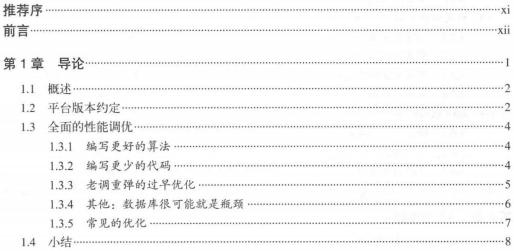 推荐序……xi
前言……xii
第 1 章　导论……1
1.1　概述……2
1.2　平台版本约定……2
1.3　全面的性能调优……4
1.3.1　编写更好的算法……4
1.3.2　编写更少的代码……4
1.3.3　老调重弹的过早优化……5
1.3.4　其他：数据库很可能就是瓶颈……6
1.3.5　常见的优化……7
1.4　小结……8